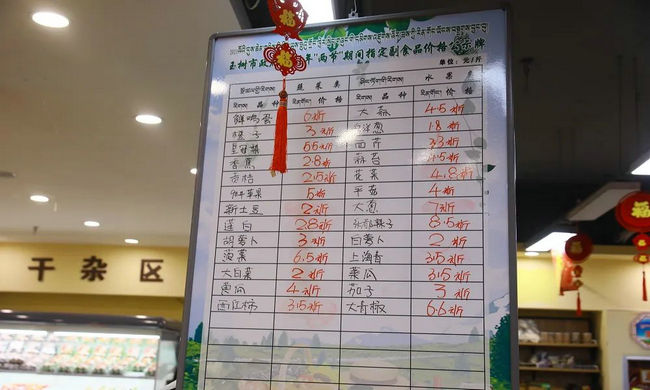 福
福
玉树市政 年"两节"期间指定副食品价格公示牌
单位：元/斤
蔬菜类 水果类
品种 价格 品种 价格
鲜鸡蛋 6元/斤 大蒜 4.5元/斤
橘子 3元/斤 白洋葱 1.8元/斤
皇冠梨 5.5元/斤 西芹 3.3元/斤
香蕉 2.8元/斤 蒜苔 4.5元/斤
2.5元/斤 花菜 4.8元/斤
苹果 5元/斤 平菇 4元/斤
新土豆 2元/斤 大葱 7元/斤
莲白 2.8元/斤 辣子 8.5元/斤
胡萝卜 3元/斤 白萝卜 2元/斤
菠菜 6.5元/斤 上海青 3.5元/斤
大白菜 2元/斤 菜瓜 3.5元/斤
黄瓜 4元/斤 茄子 3元/斤
西红柿 3.5元/斤 大青椒 6.6元/斤
干杂区
福
福